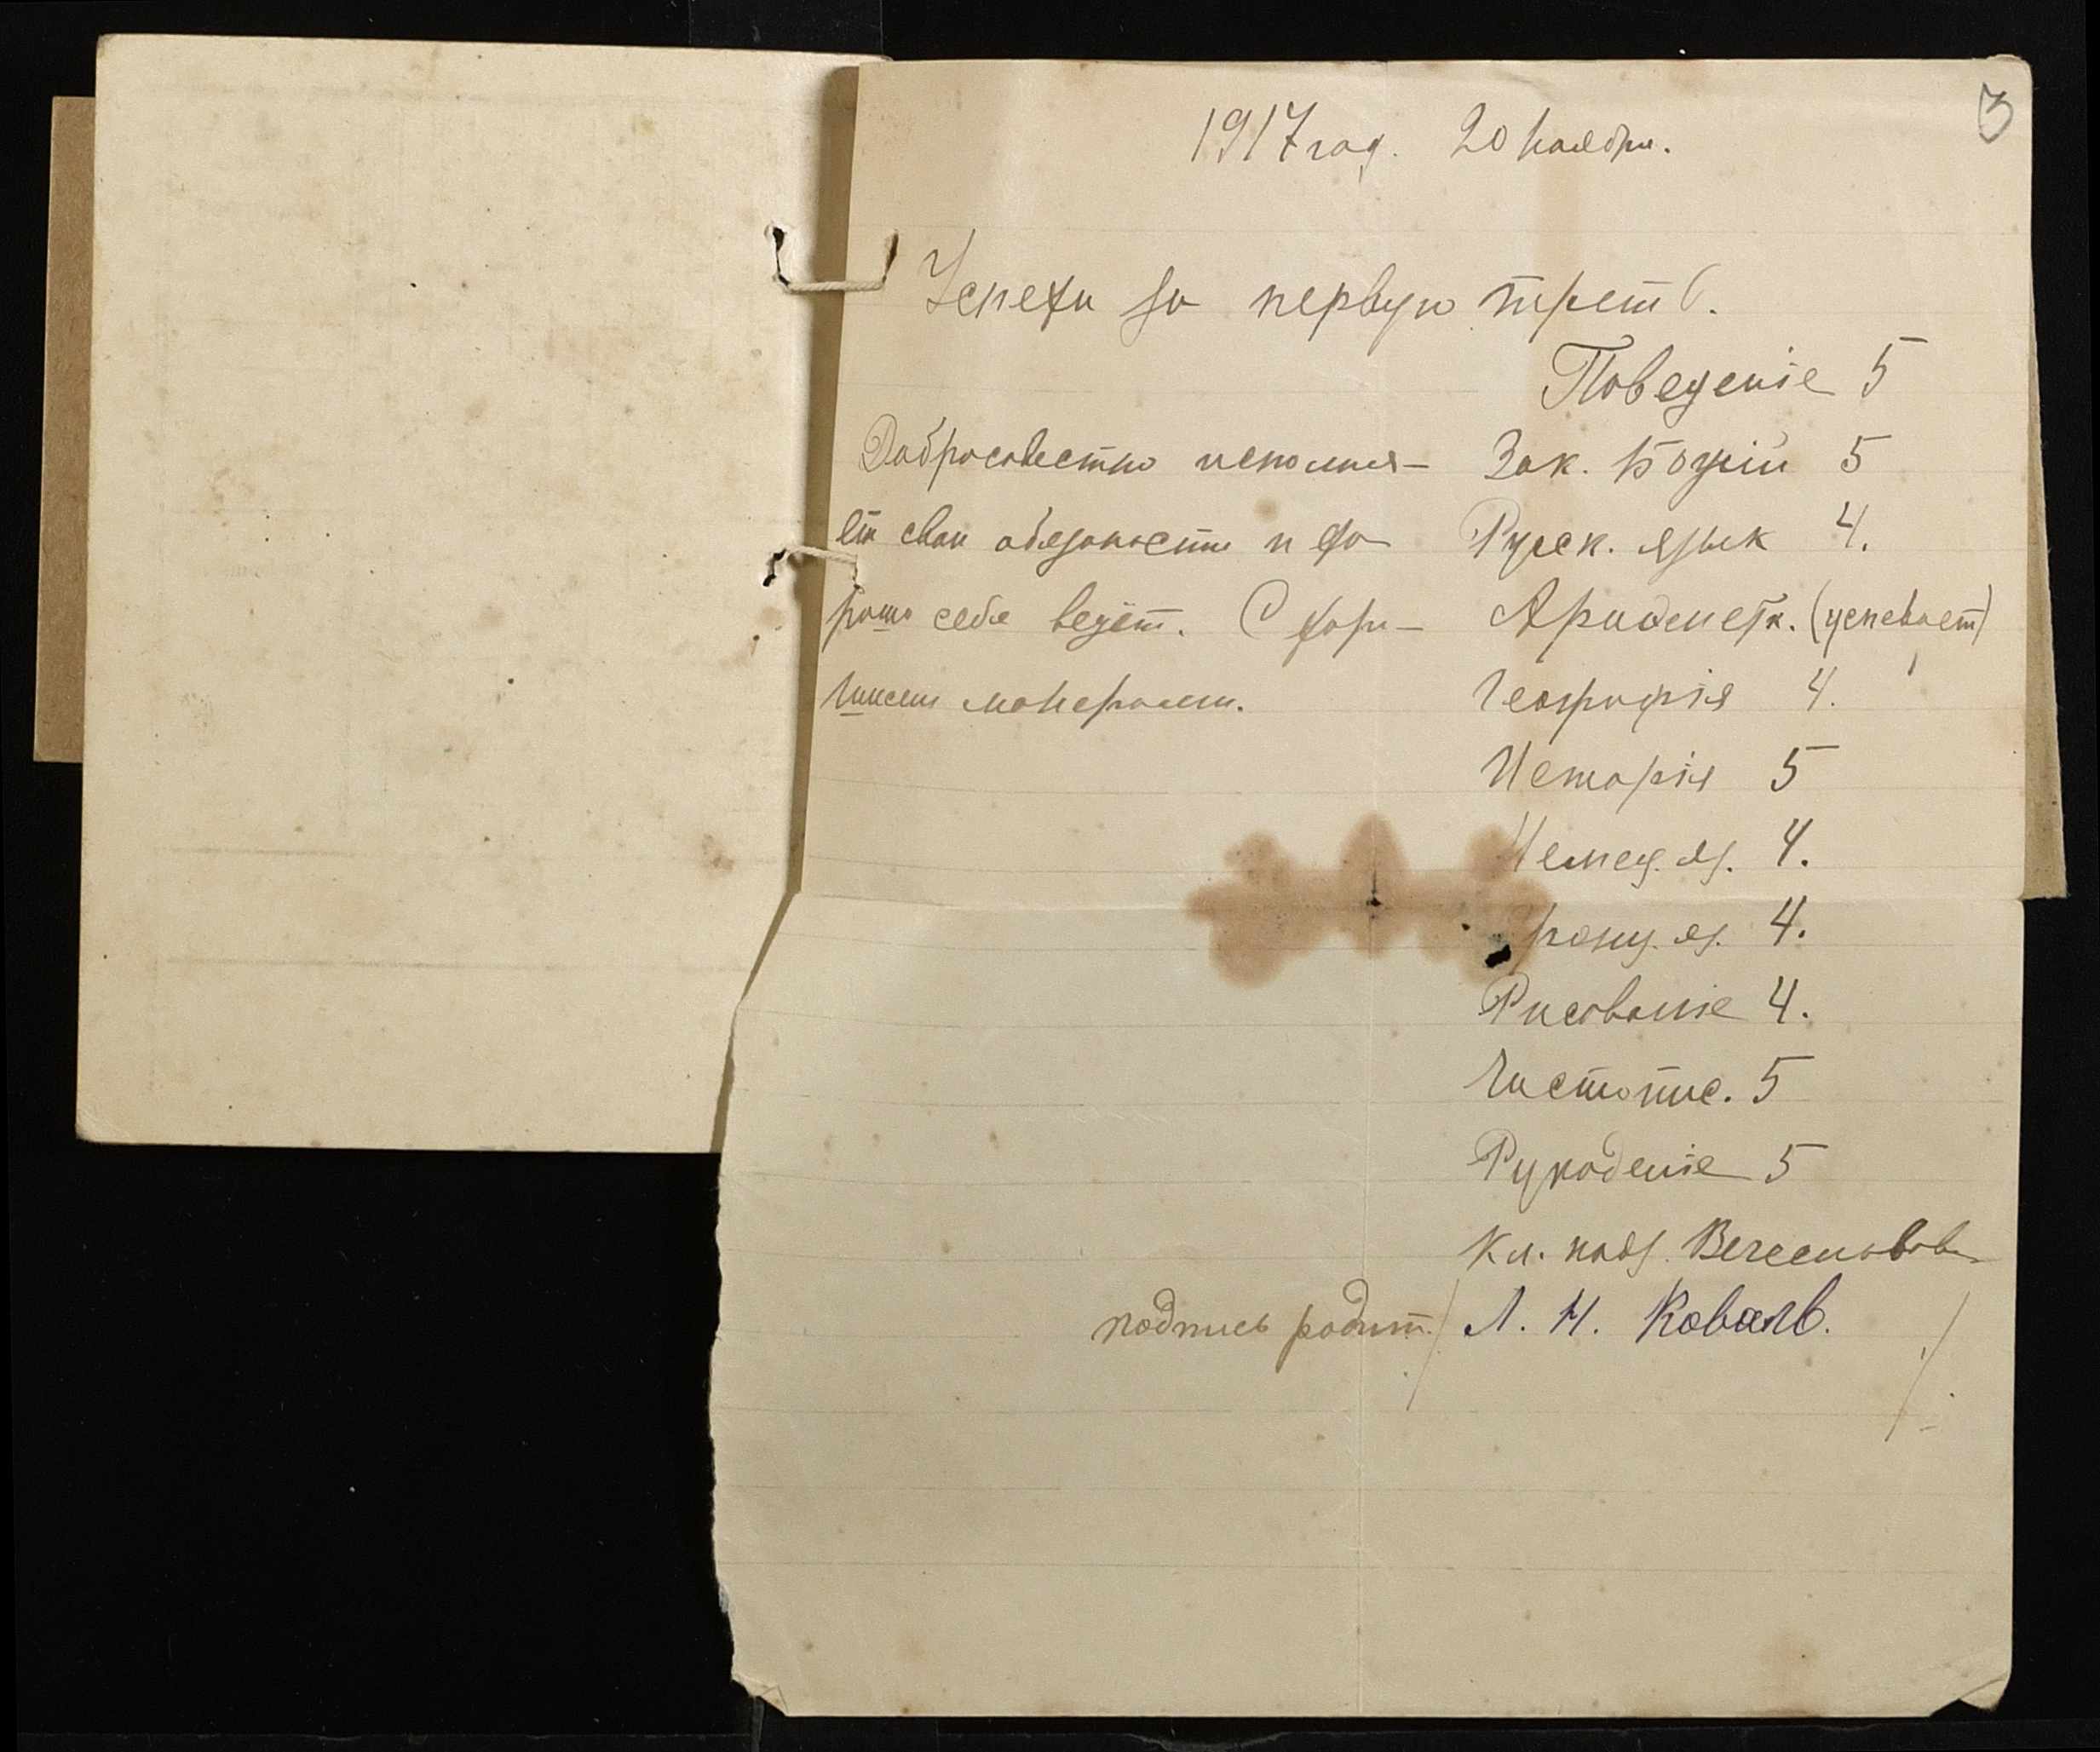 3
1917 год. 20 Ноября.
Успехи за первую треть.
Поведеніе 5
Добросовестно исполня-
ет свои обязаности и хо-
рошо себя ведёт. С хоро-
шими манерами.
Зак. Божій 5
Русск. язык 4.
Арифмет. (успевает)
Географія 4.
Исторія 5
Немец. яз. 4.
Франц. яз. 4.
Рисованіе 4.
Чистопис. 5
Рукоделіе 5
Кл. надз.
подпись родит. / Л. Н. Коваль. /